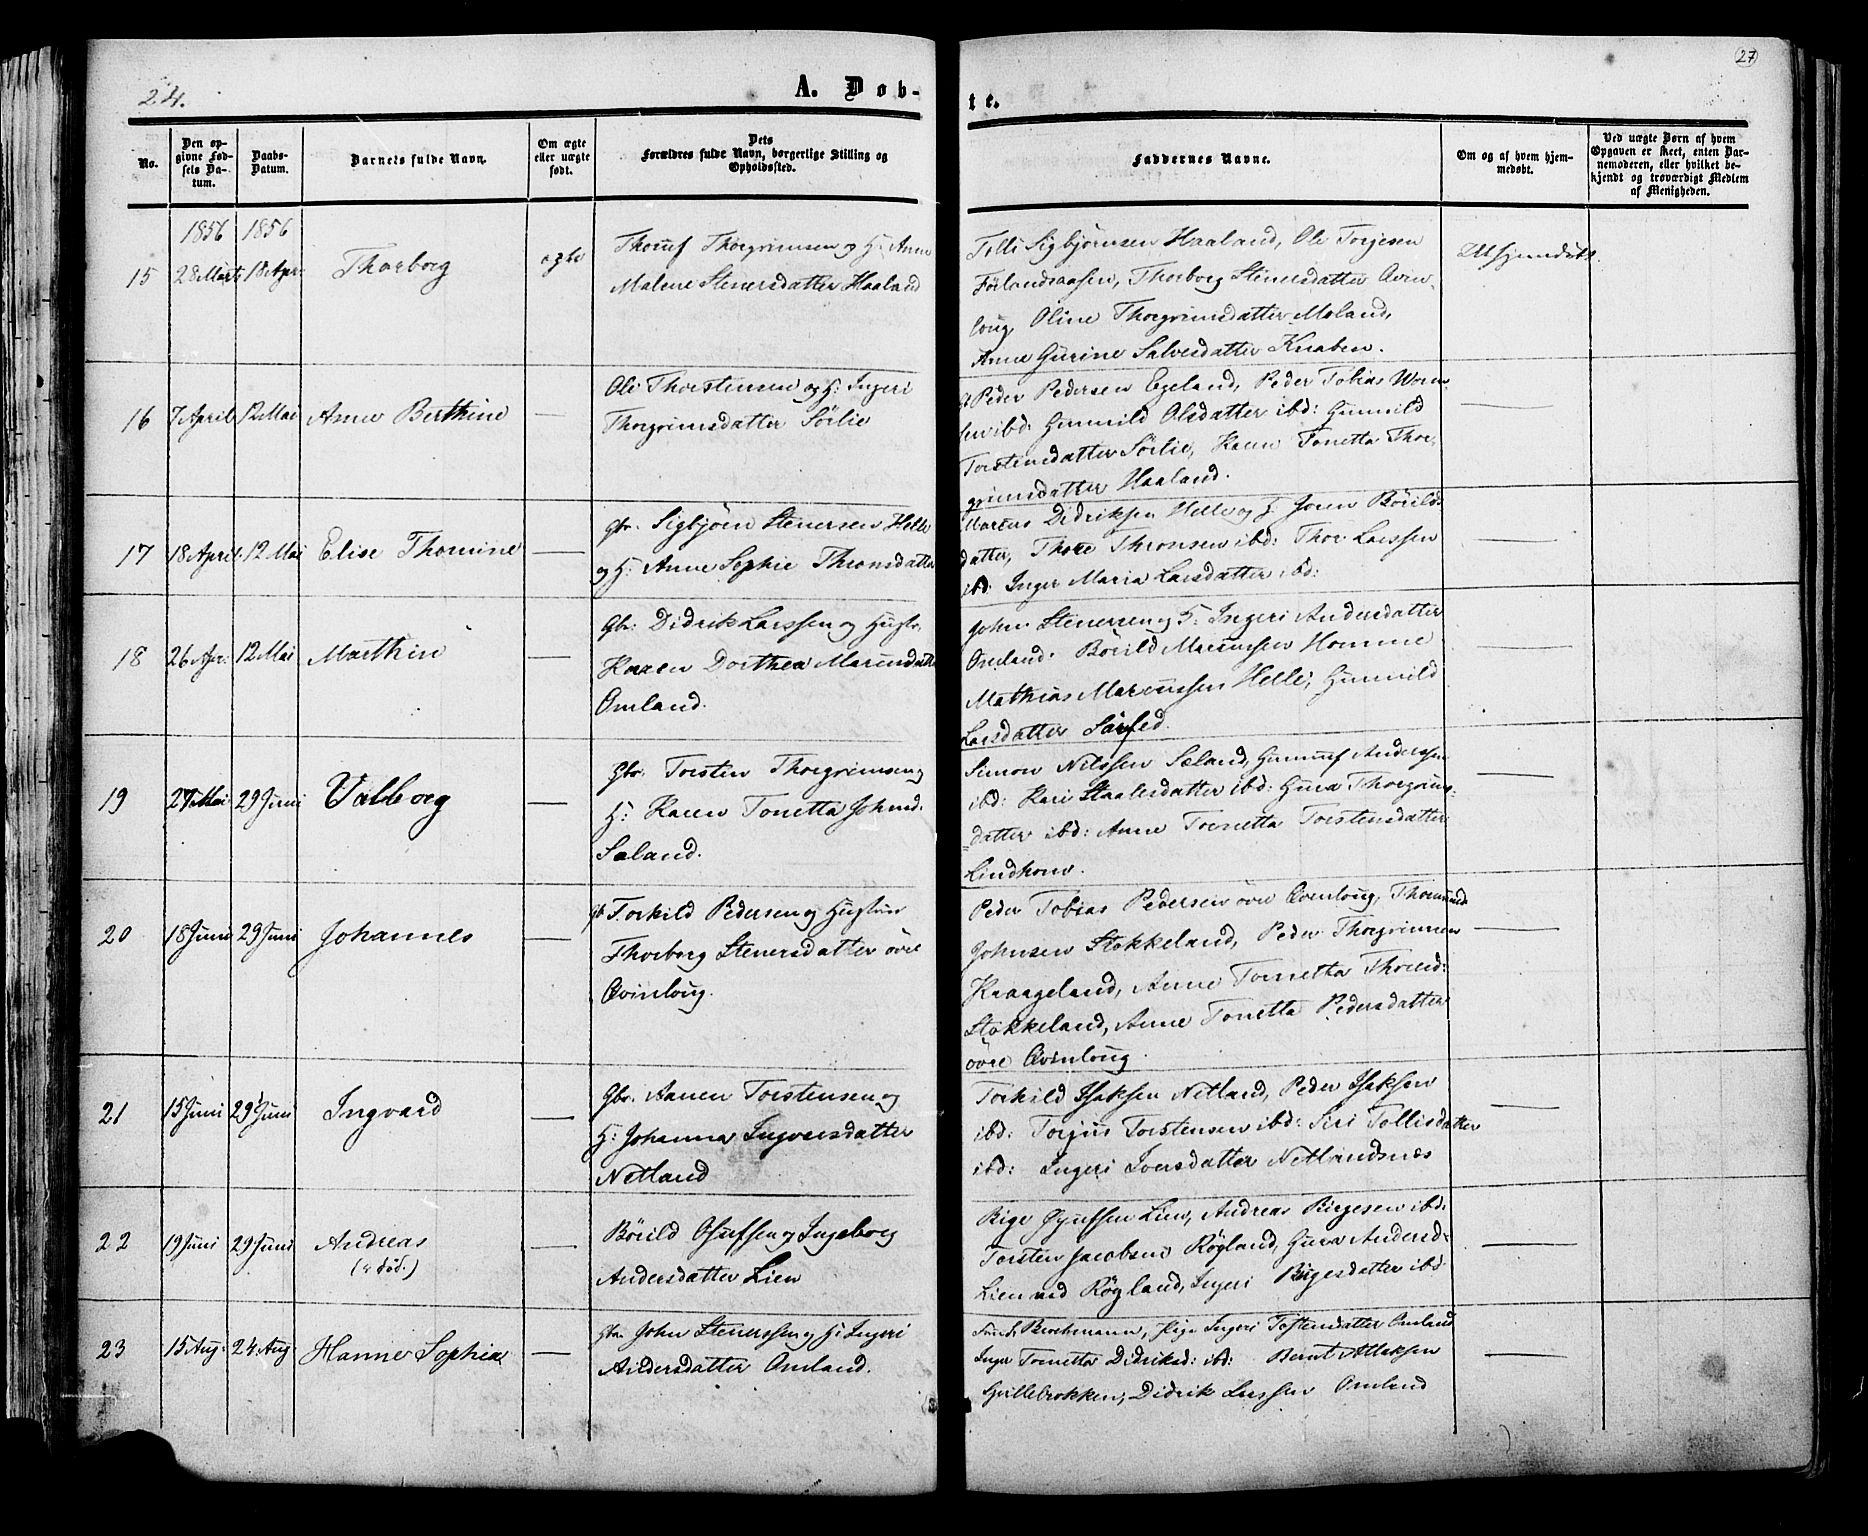 24.
27
A. Døb-
te.
No.
Den op-
givne Fød-
sels Da-
tum.
Daabs-
Datum.
Barnets fulde Navn.
Om ægte
eller uægte
født.
Dets
Forældres fulde Navn, borgerlige Stilling og
Opholdssted.
Faddernes Navne.
Om og af hvem hjem-
medøbt.
Ved uægte Børn af hvem
Opgaven er skeet, enten Bar-
nemoderen, eller hvilket be-
kjendt og troværdigt Medlem
af Menigheden.
1856 1856
15 28 Marts 18 Apr: Thorborg ægte
Thorgrimsen og H: Anne
Malene Stenersdatter Haaland
Tolli Sigbjørnsen Haaland, Ole Torjesen
Førlandsaasen, Thorborg Stenersdatter Qvin-
loug, Oline Thorgrimsdatter Moland,
Anne Gurine Salvesdatter Knaben.
16 7 April 12 Mai Anne Berthine —
Ole Thorstensen og H: Ingeri
Thorgrimsdatter Sörlie
Peder Pedersen Egeland, Peder Tobias
sen ibd: Gunnild Olsdatter ibd: Gunnild
Torstensdatter Sörlie, Karen Tonetta Thor-
grimsdatter Haaland.
17 18 April 12 Mai Elise Thomine —
Gbr. Sigbjörn Stenersen Helle
og H: Anne Sophie Thronsdatter
Marcus Didriksen Helle og H: Joren Börilds
datter, Thore Thronsen ibd: Thor Larssen
ibd: Inger Maria Larsdatter ibd:
18 26 Apr: 12 Mai Marthin —
Gbr: Didrik Larssen og Hustr.
Karen Dorthea
Omland.
John Stenersen og H: Ingeri Andersdatter
Omland. Börild Marcussen Homme
Mathias Marcussen Helle, Gunnild
Larsdatter
19 27 Mai 29 Juni Valborg —
Gbr. Torsten Thorgrimsen og
H: Karen Tonetta Johnsd.
Sæland.
Simon Nilssen Sæland, Gunnuf Anderssen
ibd: Kari Staalesdatter ibd: Gura Thorgrims-
datter ibd: Anne Tornetta Torstensdatter
Lindhom.
20 18 Juni 29 Juni Johannes —
Gb Torkild Pedersen og Hustru
Thorborg Stenersdatter övre
Qvinloug.
Peder Tobias Pedersen övre Qvinloug, Thormund
Johnsen Stokkeland, Peder Thorgrimsen
Kraageland, Anne Tornetta Thormd:
Stokkeland, Anne Tonetta Pedersdatter
övre Qvinloug.
21 15 Juni 29 Juni Ingvard —
Gbr. Aanen Torstensen og
H: Johanna Ingversdatter
Netland
Torkild Isaksen Netland, Peder Isaksen
ibd: Torjus Torstensen ibd: Siri Tollisdatter
ibd: Ingeri Iversdatter Netlandsnæs
22 19 Juni 29 Juni Andreas —
Börild Osufsen og Ingeborg
Andersdatter Lien
Birge Gjufsen Lien, Andreas Birgesen ibd:
Torsten Jacobsen Røyland, Gura Andersd:
Lien ved Røyland, Ingeri Birgesdatter ibd
23 15 Aug: 24 Aug Hanne Sophia —
Gbr. John Stenerssen og H: Ingeri
Andersdatter Omland.
Brochmann, Pige Ingeri Tostensdatter Omland
Inger Tornetta Didriksd: ibd: Bernt Atlaksen
Gyllebrokken, Didrik Larssen Omland